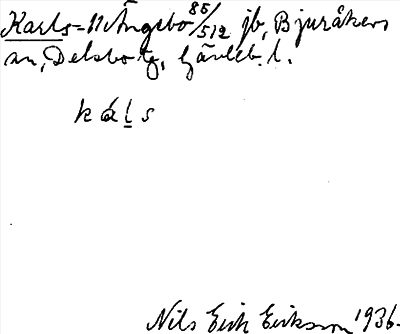 Karls=11 Ängsbo 85/512 jb, Bjuråkers
sn, Delsbo tg, Gävleb. l.
káls
Nils Erik Eriksson 1936.